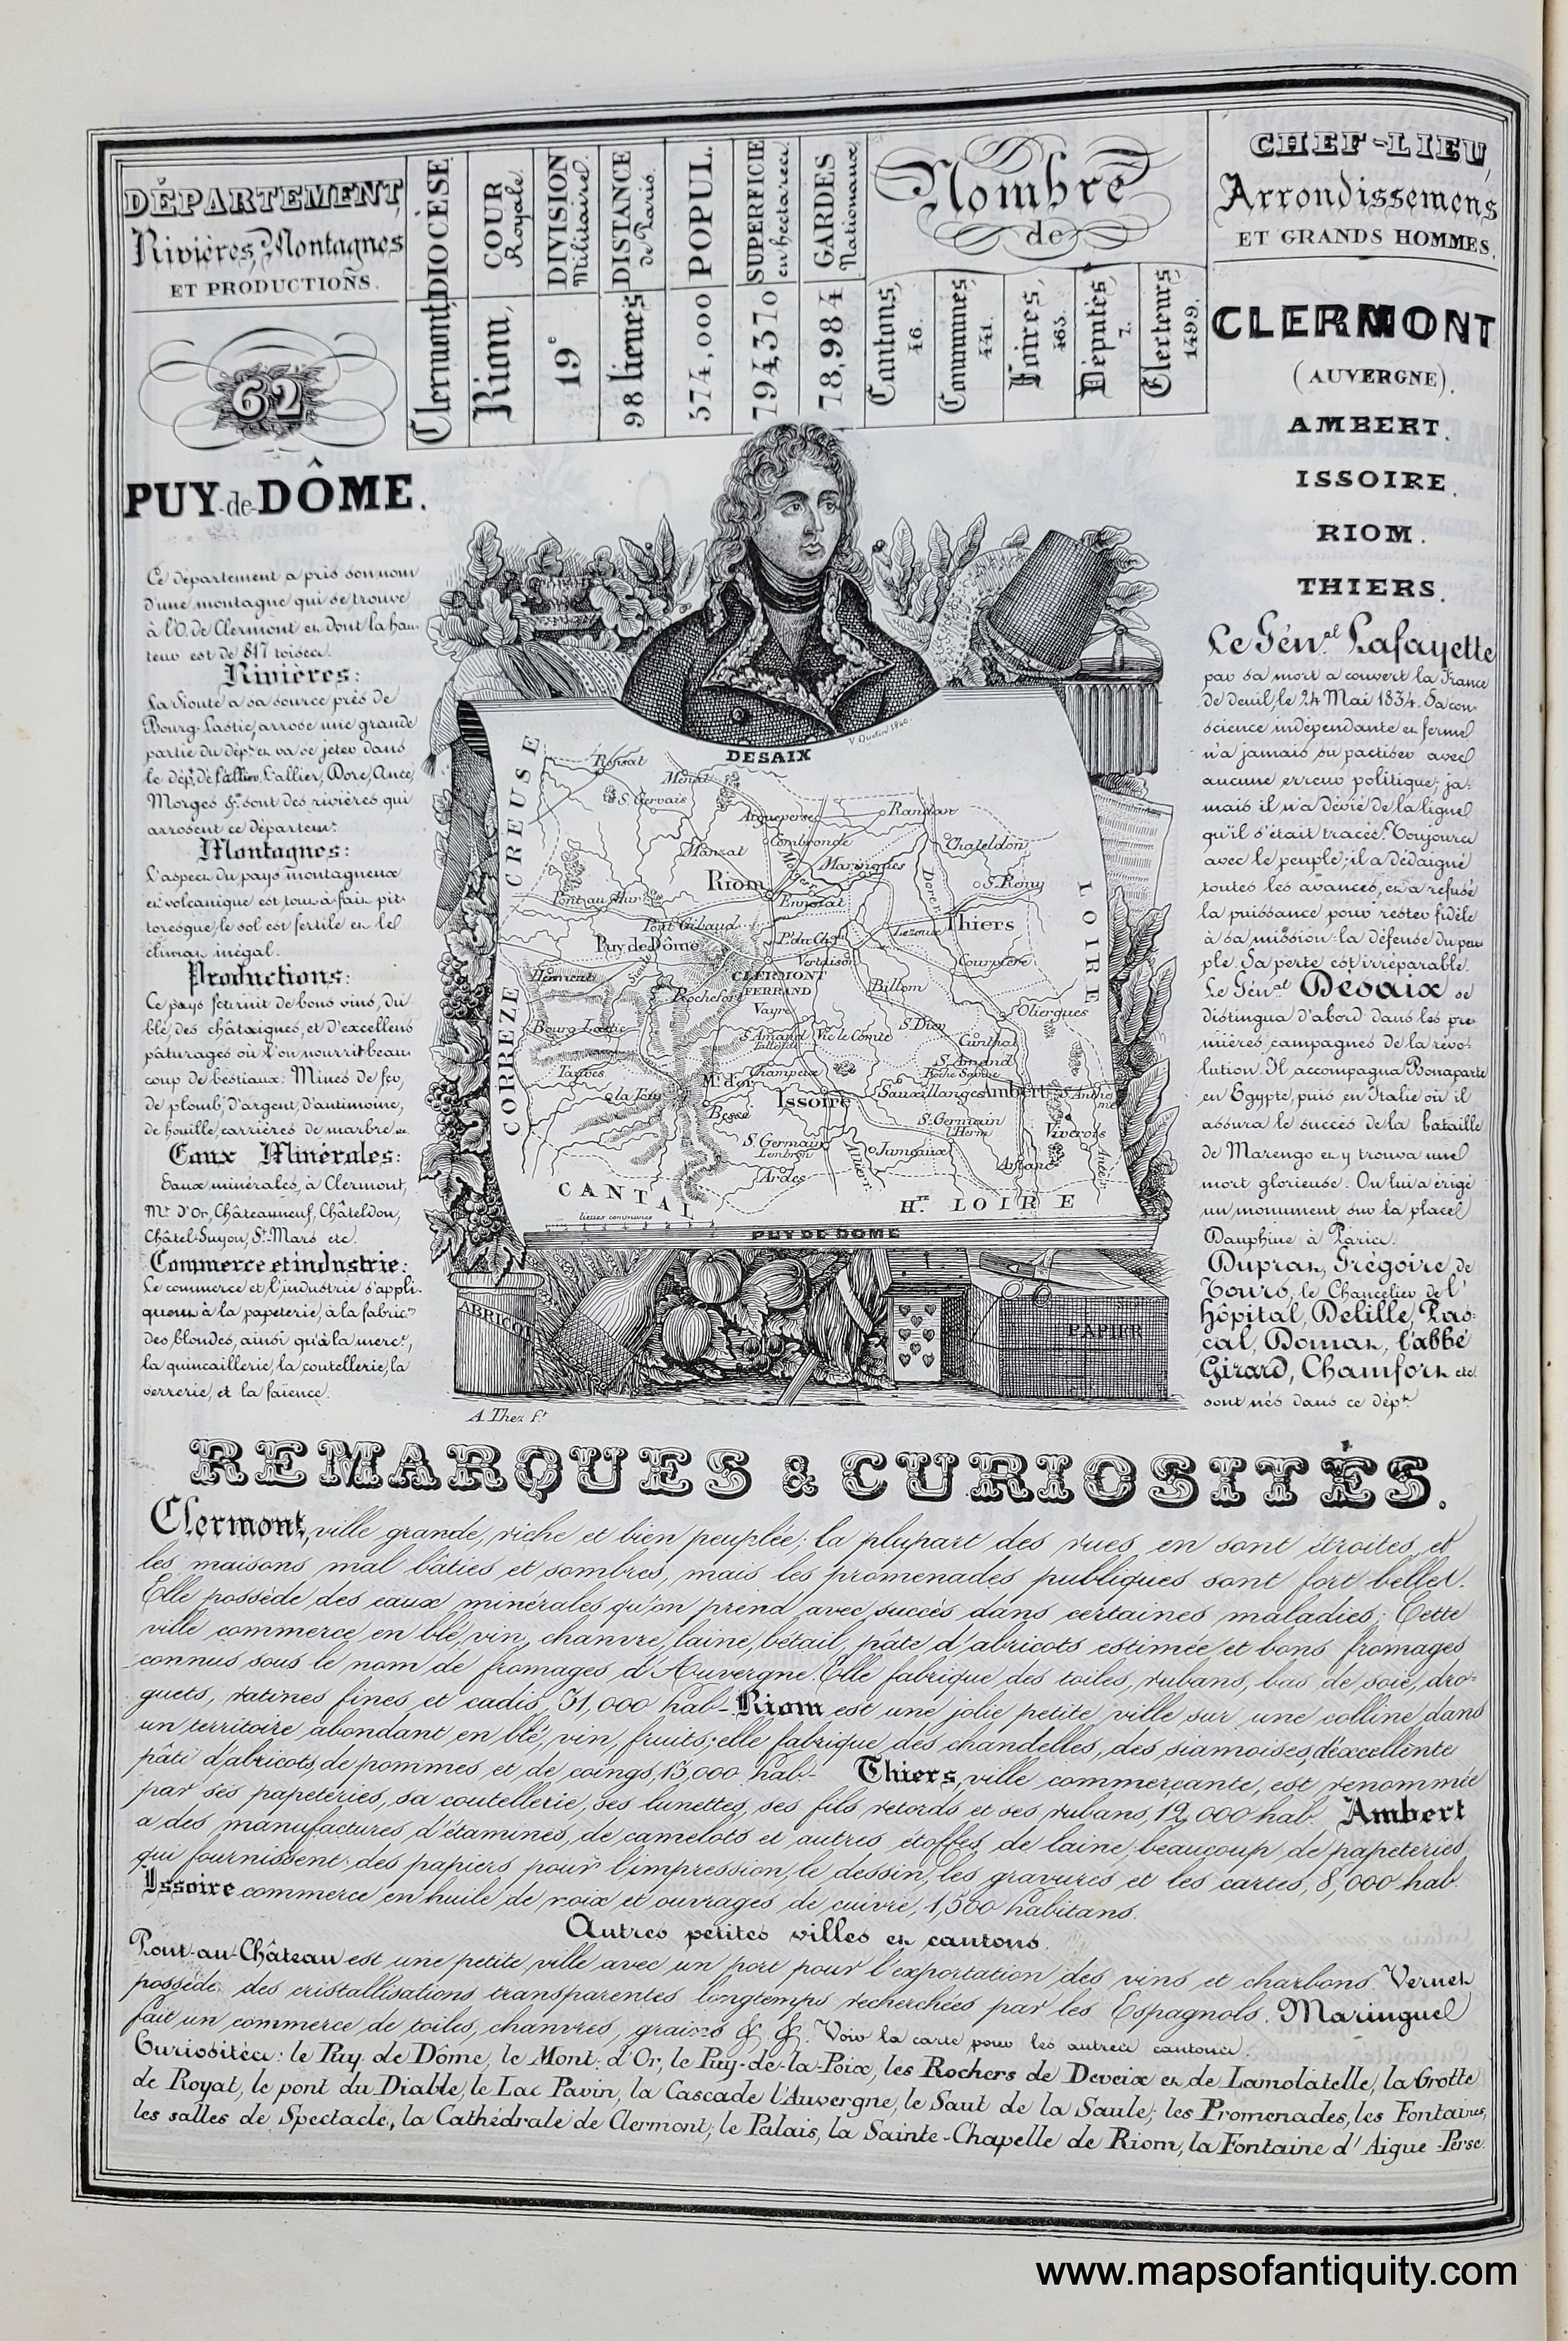 DÉPARTEMENT,
Rivières, Montagnes
ET PRODUCTIONS.
DIOCÈSE
Clermont,
COUR
Royale.
Riom,
DIVISION
Militaire
19e
DISTANCE
de Paris.
98 lieues
POPUL.
574,000
SUPERFICIE
en hectares
794,370
GARDES
Nationaux
78,984
Nombre
de
Cantons,
46.
Communes
441.
Foires,
463.
Députés
7.
Electeurs
1499.
CHEF-LIEU,
Arrondissemens
ET GRANDS HOMMES.
62
PUY-de-DÔME.
Ce département a pris son nom
d'une montagne qui se trouve
à l'O. de Clermont et dont la hau-
teur est de 817 toises.
Rivières:
La Sioute a sa source près de
Bourg-Lastic, arrose une grande
partie du dépt. et va se jeter dans
le dépt. de l'allier, L'allier, Dore, Ance,
Morges &c. sont des rivières qui
arrosent ce départemt.
Montagnes:
L'aspect du pays montagneux
et volcanique est tout à fait pit-
toresque le sol est fertile et le
climat inégal.
Productions:
Ce pays fournit de bons vins, du
blé, des châtaignes, et d'excellens
pâturages où l'on nourrit beau-
coup de bestiaux: Mines de fer,
de plomb, d'argent, d'antimoine,
de houille, carrières de marbre
Eaux Minérales:
Eaux minérales, à Clermont,
Mt. d'Or, Châteauneuf, Châteldon,
Châtel-Guyon, St. Mars etc.
Commerce et industrie:
Le commerce et l'industrie s'appli-
quent à la papeterie, à la fabricon
des blondes, ainsi qu'à la merc.e,
la quincaillerie, la coutellerie, la
verrerie, et la faïence.
CLERMONT
(AUVERGNE).
AMBERT.
ISSOIRE.
RIOM.
THIERS.
Le Génal Lafayette
par sa mort a couvert la France
de deuil, le 24 Mai 1834. Sa con-
science indépendante et ferme
n'a jamais su pactiser avec
aucune erreur politique; ja-
mais il n'a dévié de la ligne
qu'il s'était tracée. Toujours
avec le peuple; il a dédaigné
toutes les avances, et a refusé
la puissance pour rester fidèle
à sa mission: la défense du peu-
ple. Sa perte est irréparable.
Le Génal Désaix se
distingua d'abord dans les pre-
mières campagnes de la révo-
lution. Il accompagna Bonaparte
en Egypte, puis en Italie où il
assura le succès de la bataille
de Marengo et y trouva une
mort glorieuse. On lui a érigé
un monument sur la place
Dauphine à Paris.
Duprat, Grégoire, de
Tours, le Chancelier de l'
hôpital, Delille, Pas-
cal, Domat, l'abbé
Girard, Chamfort etc.
sont nés dans ce dépt.
V. Questin 1840.
DESAIX
CREUSE
LOIRE
CORREZE
CANTAL
Hte. LOIRE
Ronsat
Menat
S. Gervais
Aigueperse
Randan
Combronde
Manzat
Chateldon
Maringues
Riom
S. Remy
Pont au Mur
Ennezat
Pont Gibaud
Lezoux
Thiers
Dore
Puy de Dôme
Pt. du Chau
Vertaison
Courpière
Herment
CLERMONT
FERRAND
Sioule
Rochefort
Billom
Vayre
Oliergues
Bourg Lastic
S. Amand
Tallende
Vic le Comte
S. Dier
Cunlhat
S. Amand
Roche Savine
Tauves
Champeix
la Tour
Mt. d'or
Issoire
Sauxillanges
Ambert
S. Anthe
me
Besse
S. Germain
l'Herm
Viverols
S. Germain
Lembron
Jumeaux
Arlanc
Ardes
Allier
Ance
lieues communes
PUY DE DOME
ABRICOT
PAPIER
A. Thez ft.
REMARQUES & CURIOSITÉS.
Clermont, ville grande, riche et bien peuplée; la plupart des rues en sont étroites, et
les maisons mal bâties et sombres, mais les promenades publiques sont fort belles.
Elle possède des eaux minérales qu'on prend avec succès dans certaines maladies; Cette
ville commerce en blé, vin, chanvre, laine, bétail, pâte d'abricots estimée et bons fromages
connus sous le nom de fromages d'Auvergne. Elle fabrique des toiles, rubans, bas de soie, dro-
guets, ratines fines et cadis, 31,000 hab- Riom est une jolie petite ville sur une colline dans
un territoire abondant en blé, vin, fruits; elle fabrique des chandelles, des siamoises, d'excellente
pâte d'abricots, de pommes et de coings, 13,000 hab- Thiers, ville commerçante, est renommée
par ses papeteries, sa coutellerie, ses lunettes, ses fils retords et ses rubans, 12,000 hab. Ambert
a des manufactures d'étamines, de camelots et autres étoffes de laine, beaucoup de papeteries,
qui fournissent des papiers pour l'impression, le dessin, les gravures et les cartes, 8,000 hab.
Issoire commerce en huile de noix et ouvrages de cuivre, 1,500 habitans.
Autres petites villes et cantons.
Pont-au-Château est une petite ville avec un port pour l'exportation des vins et charbons. Vernet
possède des cristallisations transparentes longtemps recherchées par les Espagnols. Maringue
fait un commerce de toiles, chanvres, grains &. &. Voir la carte pour les autres cantons.
Curiosités: le Puy de Dôme, le Mont-d'Or, le Puy-de-la-Poix, les Rochers de Deveix et de Lamolatelle, la Grotte
de Royat, le pont du Diable, le Lac Pavin, la Cascade l'Auvergne, le Saut de la Saule; les Promenades, les Fontaines,
les salles de Spectacle, la Cathédrale de Clermont; le Palais, la Sainte-Chapelle de Riom, la Fontaine d'Aigue-Perse.
www.mapsofantiquity.com